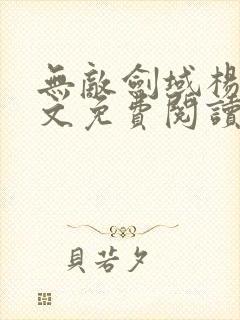 無敵劍域楊
文免費閱讀
貝若夕